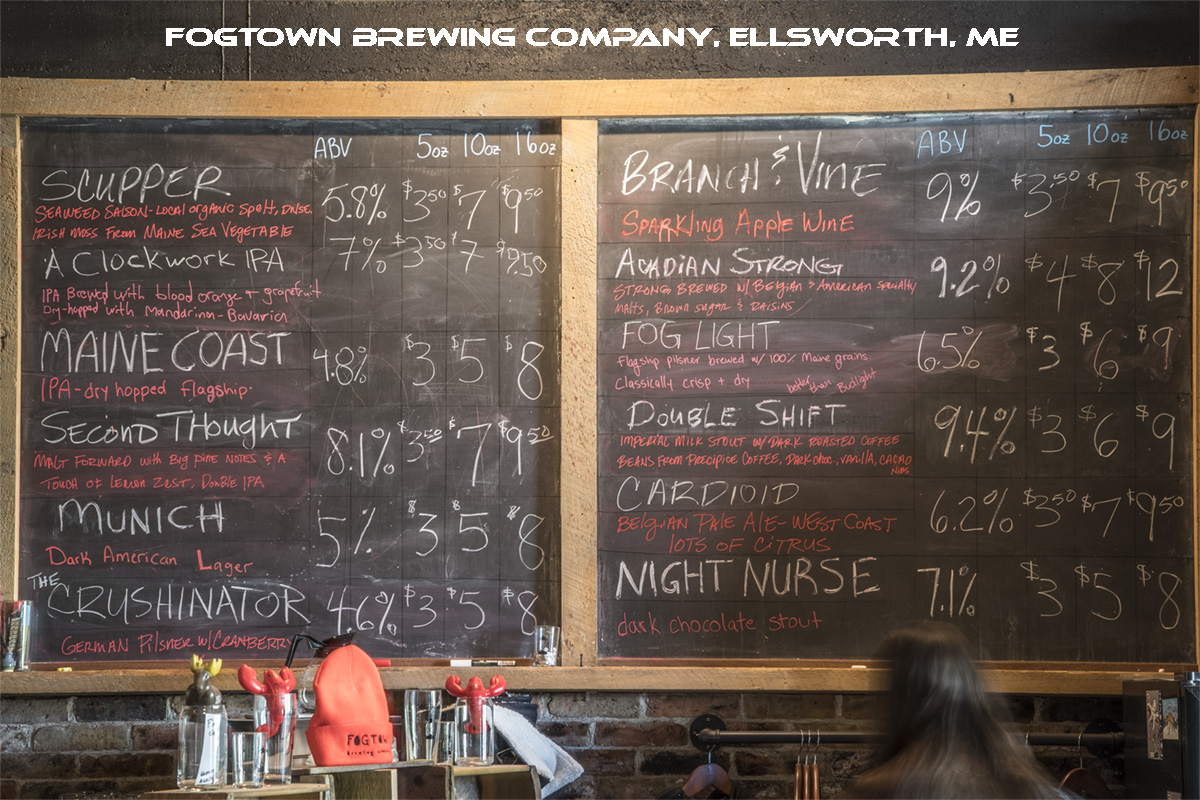 FOGTOWN BREWING COMPANY, ELLSWORTH, ME
ABV 5oz 10oz 16oz
SCUPPER 5.8% $3.50 $7 $9.50
SEAWEED SAISON-LOCAL ORGANIC SPELT, DULSE,
IRISH MOSS FROM MAINE SEA VEGETABLE
A Clockwork IPA 7% $3.50 $7 $9.50
IPA Brewed with blood orange + grapefruit
Dry-hopped with Mandarina-Bavaria
MAINE COAST 4.8% $3 $5 $8
IPA-dry hopped Flagship.
SECOND THOUGHT 8.1% $3.50 $7 $9.50
MALT FORWARD with Big PINE NOTES & A
TOUCH OF LEMON ZEST, DOUBLE IPA
MUNICH 5% $3 $5 $8
Dark American Lager
THE CRUSHINATOR 4.6% $3 $5 $8
GERMAN PILSNER W/CRANBERRY
ABV 5oz 10oz 16oz
BRANCH & VINE 9% $3.50 $7 $9.50
SPARKLING APPLE WINE
ACADIAN STRONG 9.2% $4 $8 $12
STRONG BREWED W/ BELGIAN & AMERICAN SPECIALTY
MALTS, BROWN SUGAR & RAISINS
FOG LIGHT 6.5% $3 $6 $9
Flagship pilsner brewed w/ 100% Maine grains
Classically crisp + dry better than Budlight
DOUBLE SHIFT 9.4% $3 $6 $9
IMPERIAL MILK STOUT W/ DARK ROASTED COFFEE
BEANS FROM PRECIPICE COFFEE, DARK CHOC, VANILLA, CACAO
NIBS
CARDIOID 6.2% $3.50 $7 $9.50
BELGIAN PALE ALE-WEST COAST
LOTS OF CITRUS
NIGHT NURSE 7.1% $3 $5 $8
dark chocolate stout
FOGTOWN